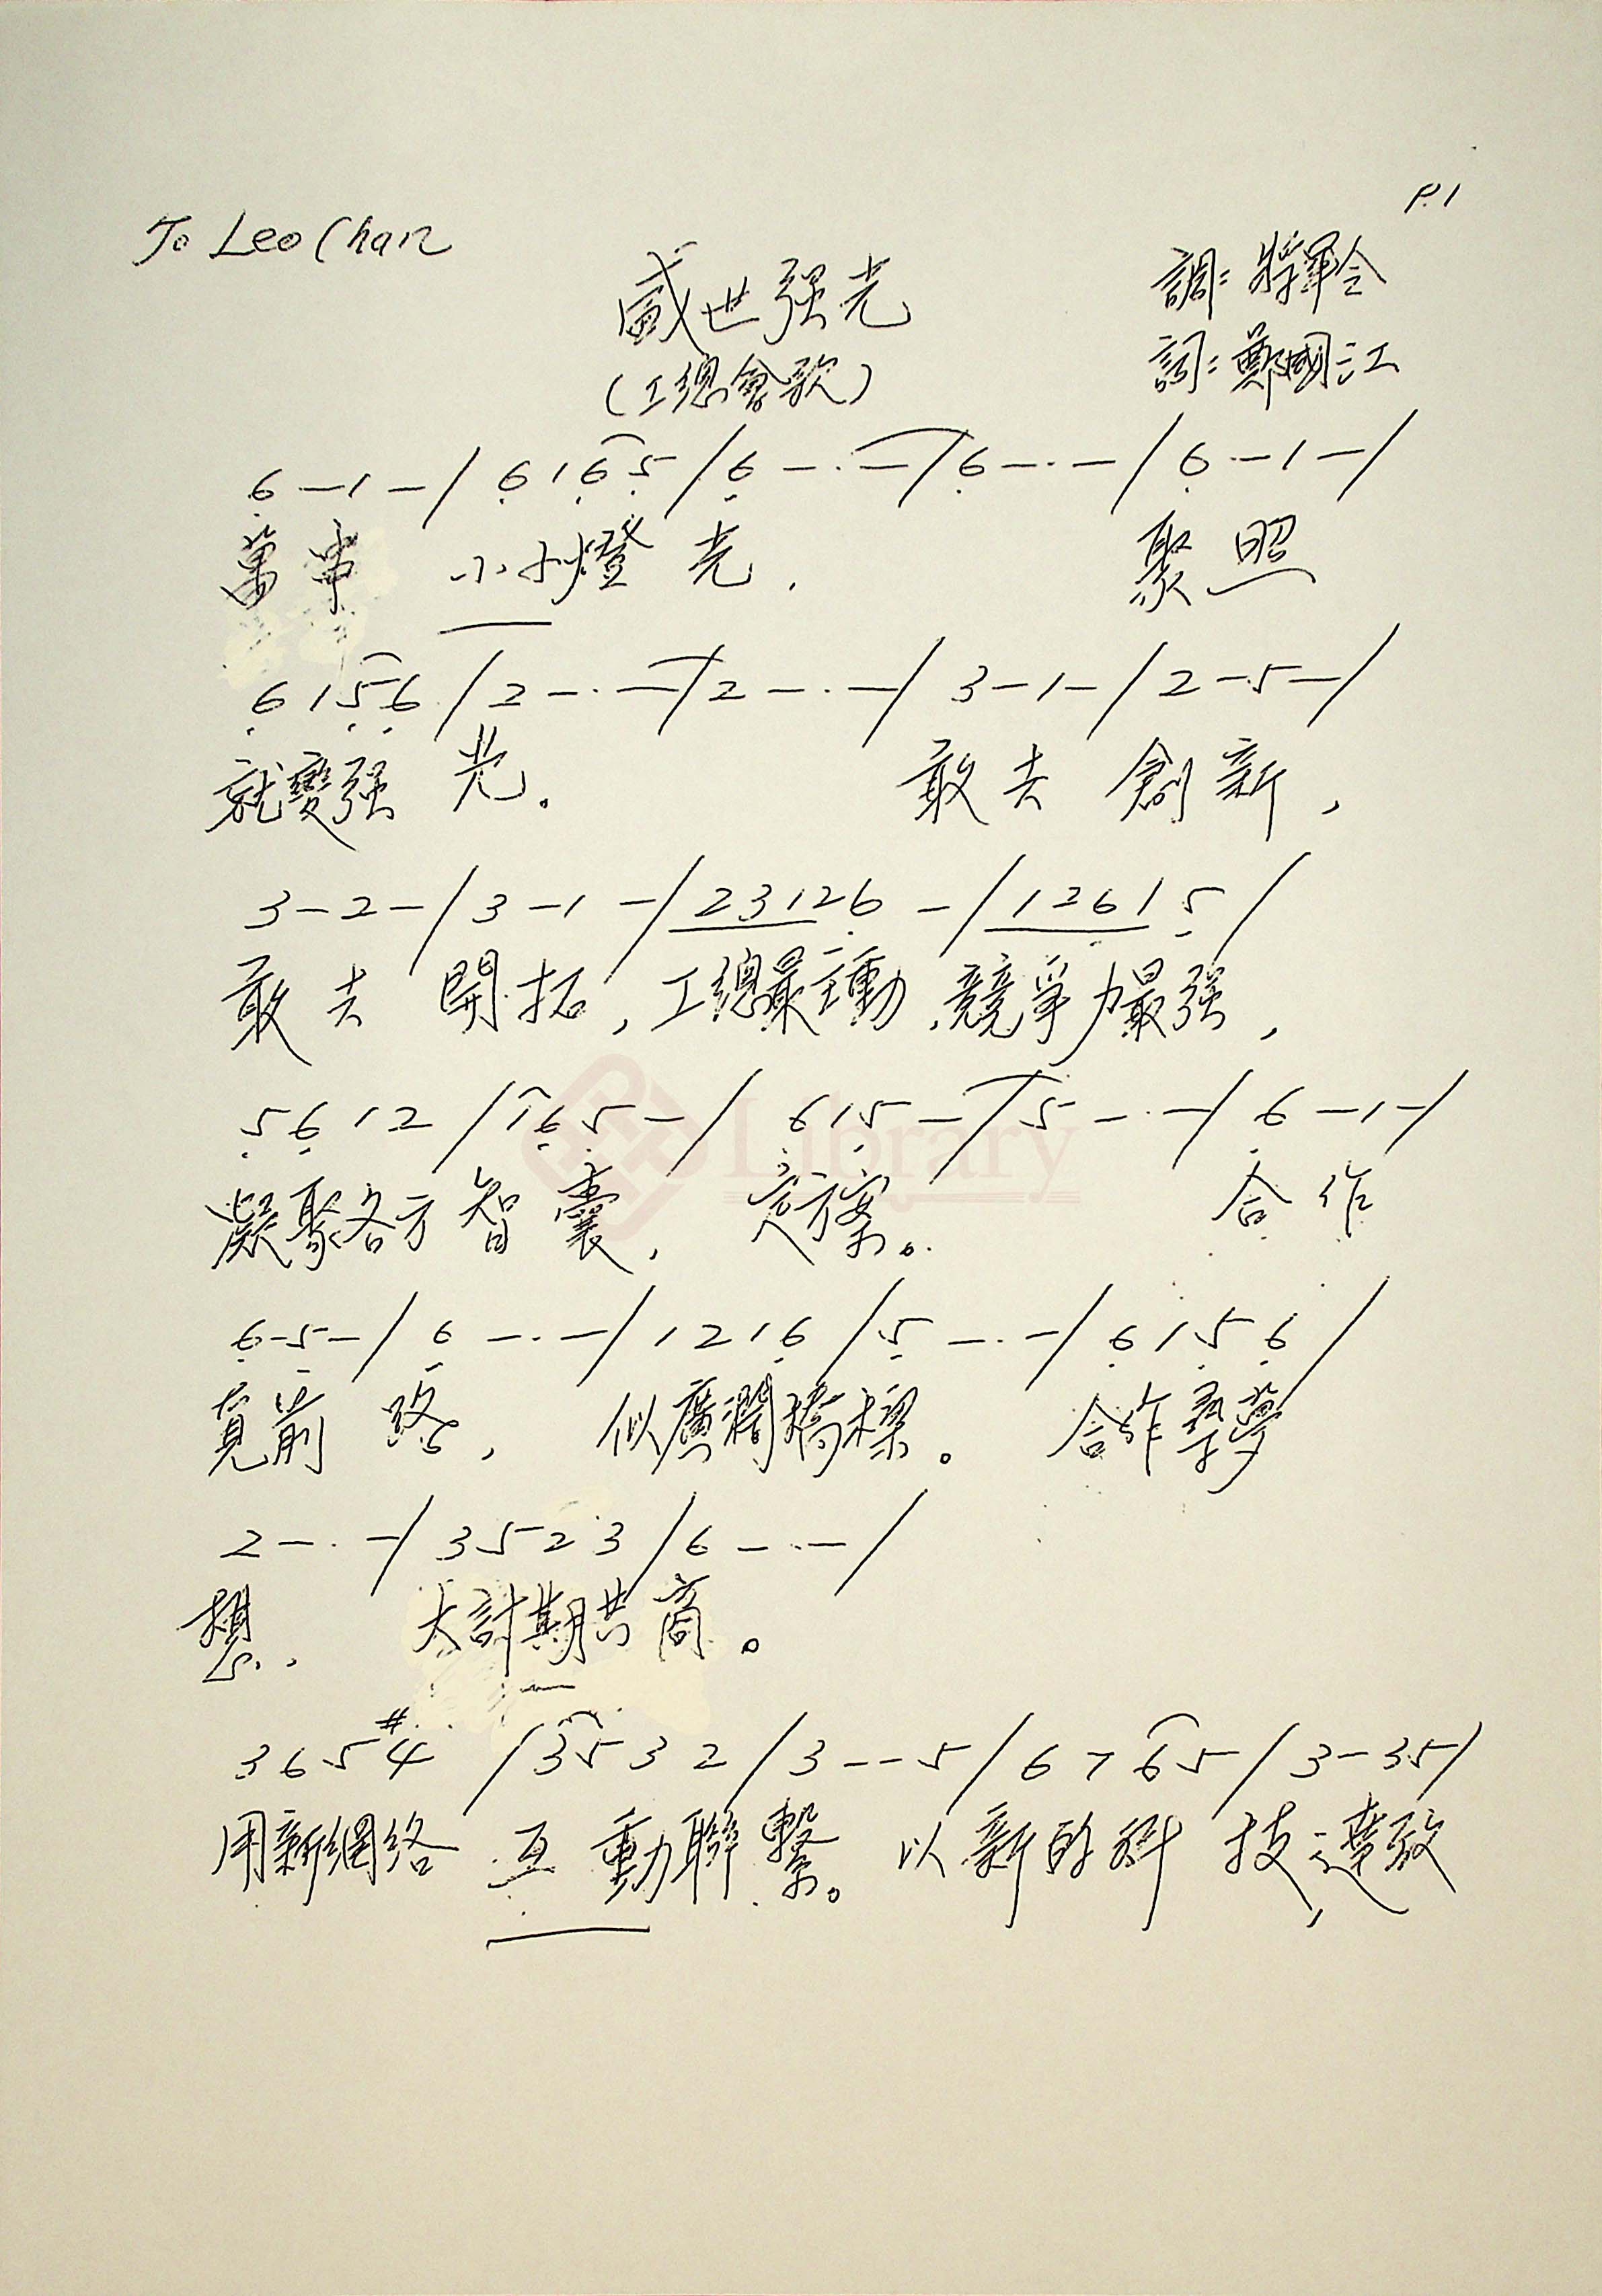 P.1
To Leo Chan
盛世强光
調：將軍令
(工總會歌)
詞：鄭國江
6 — 1 — / 6 1 6 5 / 6 — · — / 6 — · — / 6 — 1 — /
萬串 小小燈光， 聚照
6 1 5 6 / 2 — · — / 2 — · — / 3 — 1 — / 2 — 5 — /
就變强光。 敢去創新，
3 — 2 — / 3 — 1 — / 2 3 1 2 6 — / 1 2 6 1 5 /
敢去開拓，工總最主動，競爭力最强，
5 6 1 2 / 1 6 5 — / 6 1 5 — / 5 — · — / 6 — 1 — /
凝聚各方智囊， 定方案。 合作
6 — 5 — / 6 — · — / 1 2 1 6 / 5 — · — / 6 1 5 6 /
覓前路， 似廣濶橋樑。 合作孰夢
2 — · — / 3 5 2 3 / 6 — · — /
想， 大計期共商。
3 6 5 #4 / 3 5 3 2 / 3 — — 5 / 6 7 6 5 / 3 — 3 5 /
用新網絡 互動聯繫。以新的科技，達致
Library